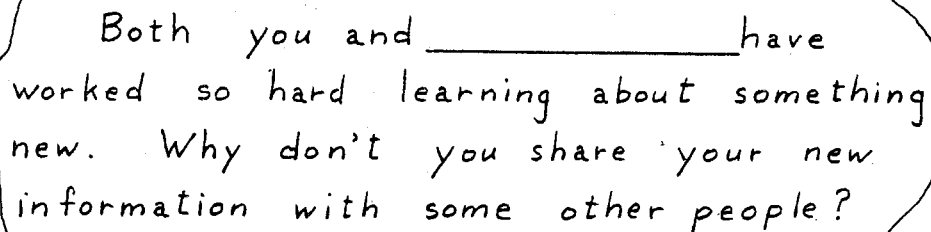 Both you and ______________ have
worked so hard learning about something
new. Why don't you share your new
information with some other people?